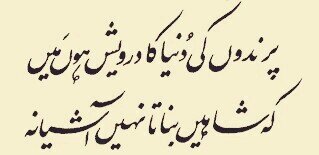 پرندوں کی دُنیا کا درویش ہوں مَیں
کہ شاہیں بناتا نہیں آشیانہ